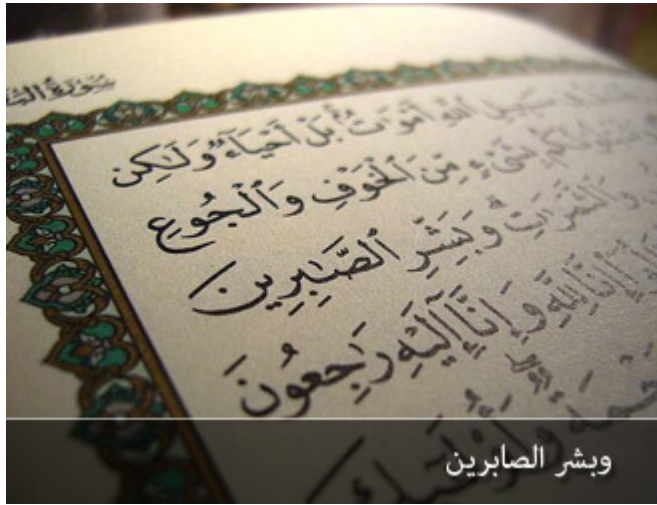 سورة
سَبِيلِ ٱللَّهِ أَمْوَٰتٌۢ بَلْ أَحْيَآءٌ وَلَٰكِن
بِشَىْءٍ مِّنَ ٱلْخَوْفِ وَٱلْجُوعِ
وَٱلثَّمَرَٰتِ ۗ وَبَشِّرِ ٱلصَّٰبِرِينَ
إِنَّا لِلَّهِ وَإِنَّآ إِلَيْهِ رَٰجِعُونَ
وبشر الصابرين